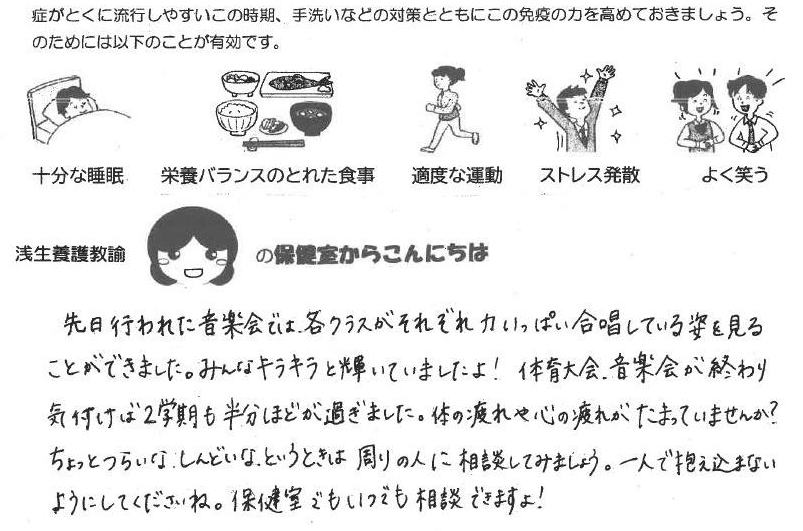 症がとくに流行しやすいこの時期、手洗いなどの対策とともにこの免疫の力を高めておきましょう。そ
のためには以下のことが有効です。
十分な睡眠 栄養バランスのとれた食事 適度な運動 ストレス発散 よく笑う
浅生養護教諭 の保健室からこんにちは
先日行われた音楽会では、各クラスがそれぞれ力いっぱい合唱している姿を見る
ことができました。みんなキラキラと輝いていましたよ！ 体育大会、音楽会が終わり
気付けば2学期も半分ほどが過ぎました。体の疲れや心の疲れがたまっていませんか？
ちょっとつらいな、しんどいな、というときは周りの人に相談してみましょう。一人で抱え込まない
ようにしてくださいね。保健室でもいつでも相談できますよ！